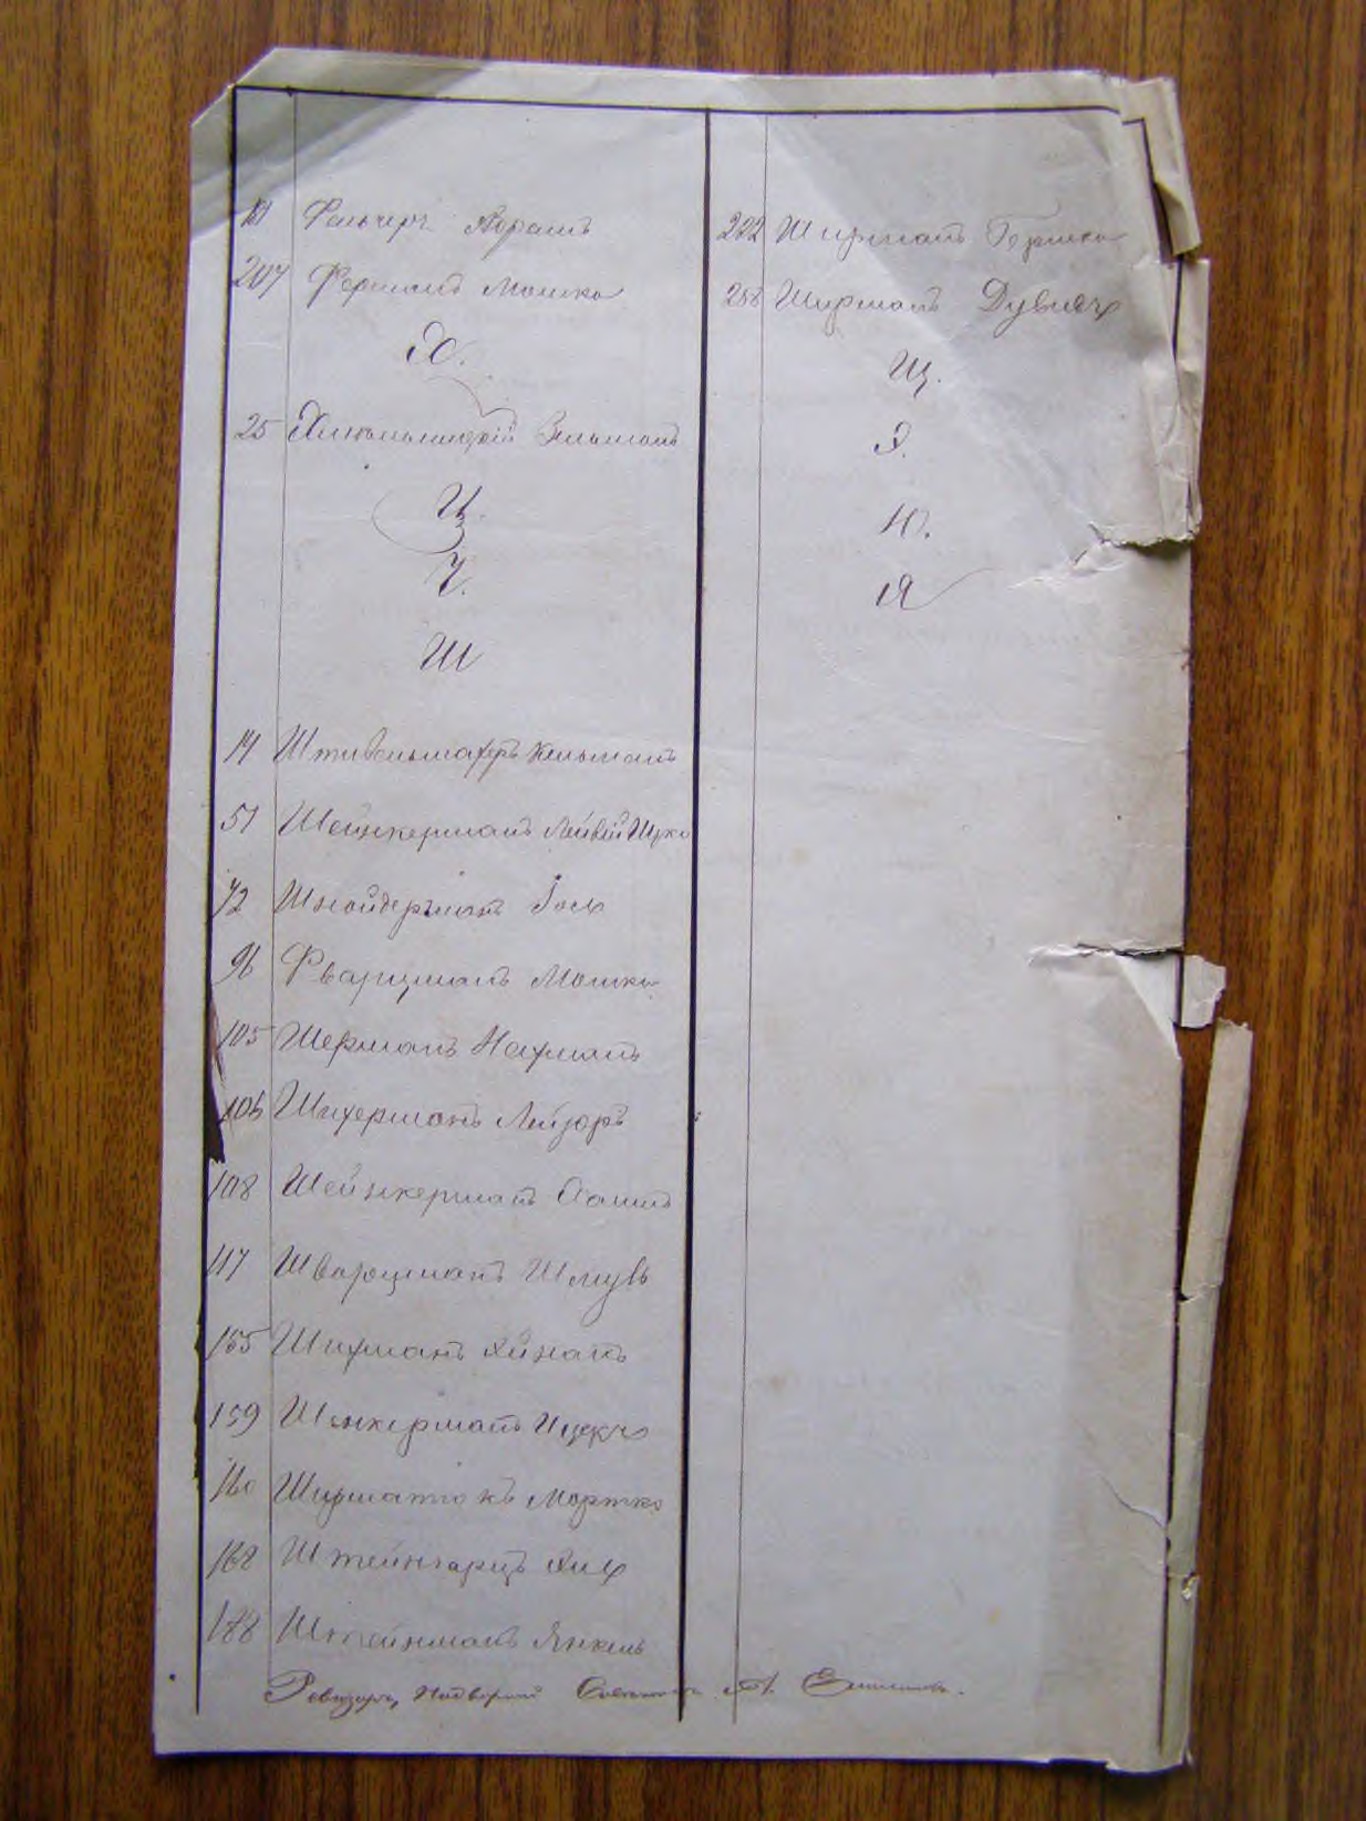 Фельчеръ Абрамъ
207 Ферманъ Мошко
Х.
25 Хмельницкій Зельманъ
Ц.
Ч.
Ш
14 Штивельмахеръ Кельманъ
51 Шейнкерманъ Лейбъ Ицко
72 Шнайдерманъ Іось
96 Шварцманъ Мошко
105 Шерманъ Нахманъ
106 Шихерманъ Лейзоръ
108 Шейнкерманъ
117 Шварцманъ Шмуль
155 Шихманъ
159 Шенкерманъ Ицекъ
160 Мортко
168 Штейнгарцъ
188 Штейнманъ Янкель
222 Шихманъ Гершко
256 Ширманъ Дувидъ
Щ.
Э.
Ю.
Я
Ревизоръ, Надворный Совѣтникъ